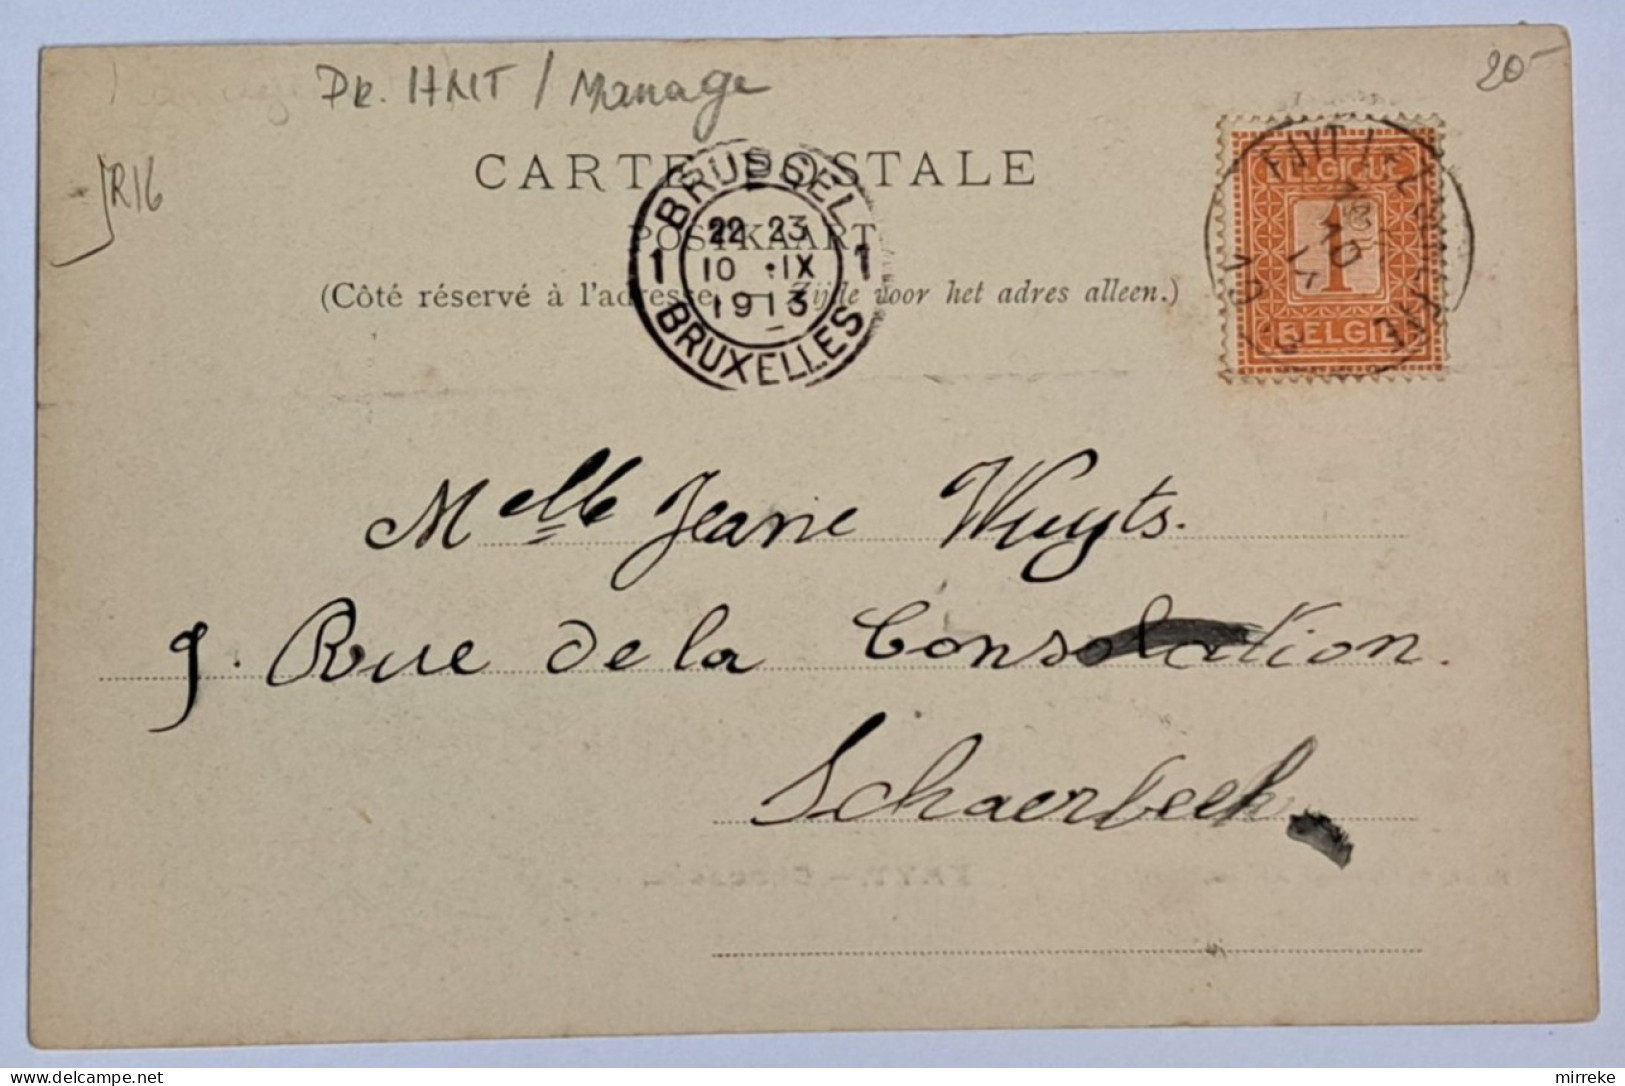 Pr. HNT / Manage
20-
JR16
CARTE POSTALE
POSTKAART
(Côté réservé à l'adresse. — Zijde voor het adres alleen.)
BRUSSEL
1 22-23 1
10 IX
1913
BRUXELLES
BELGIQUE
1
BELGIË
FAYT-LEZ-
10
13
Melle Jeane Wuyts.
9. Rue de la Consolation.
Schaerbeek
FAYT. —
mirreke